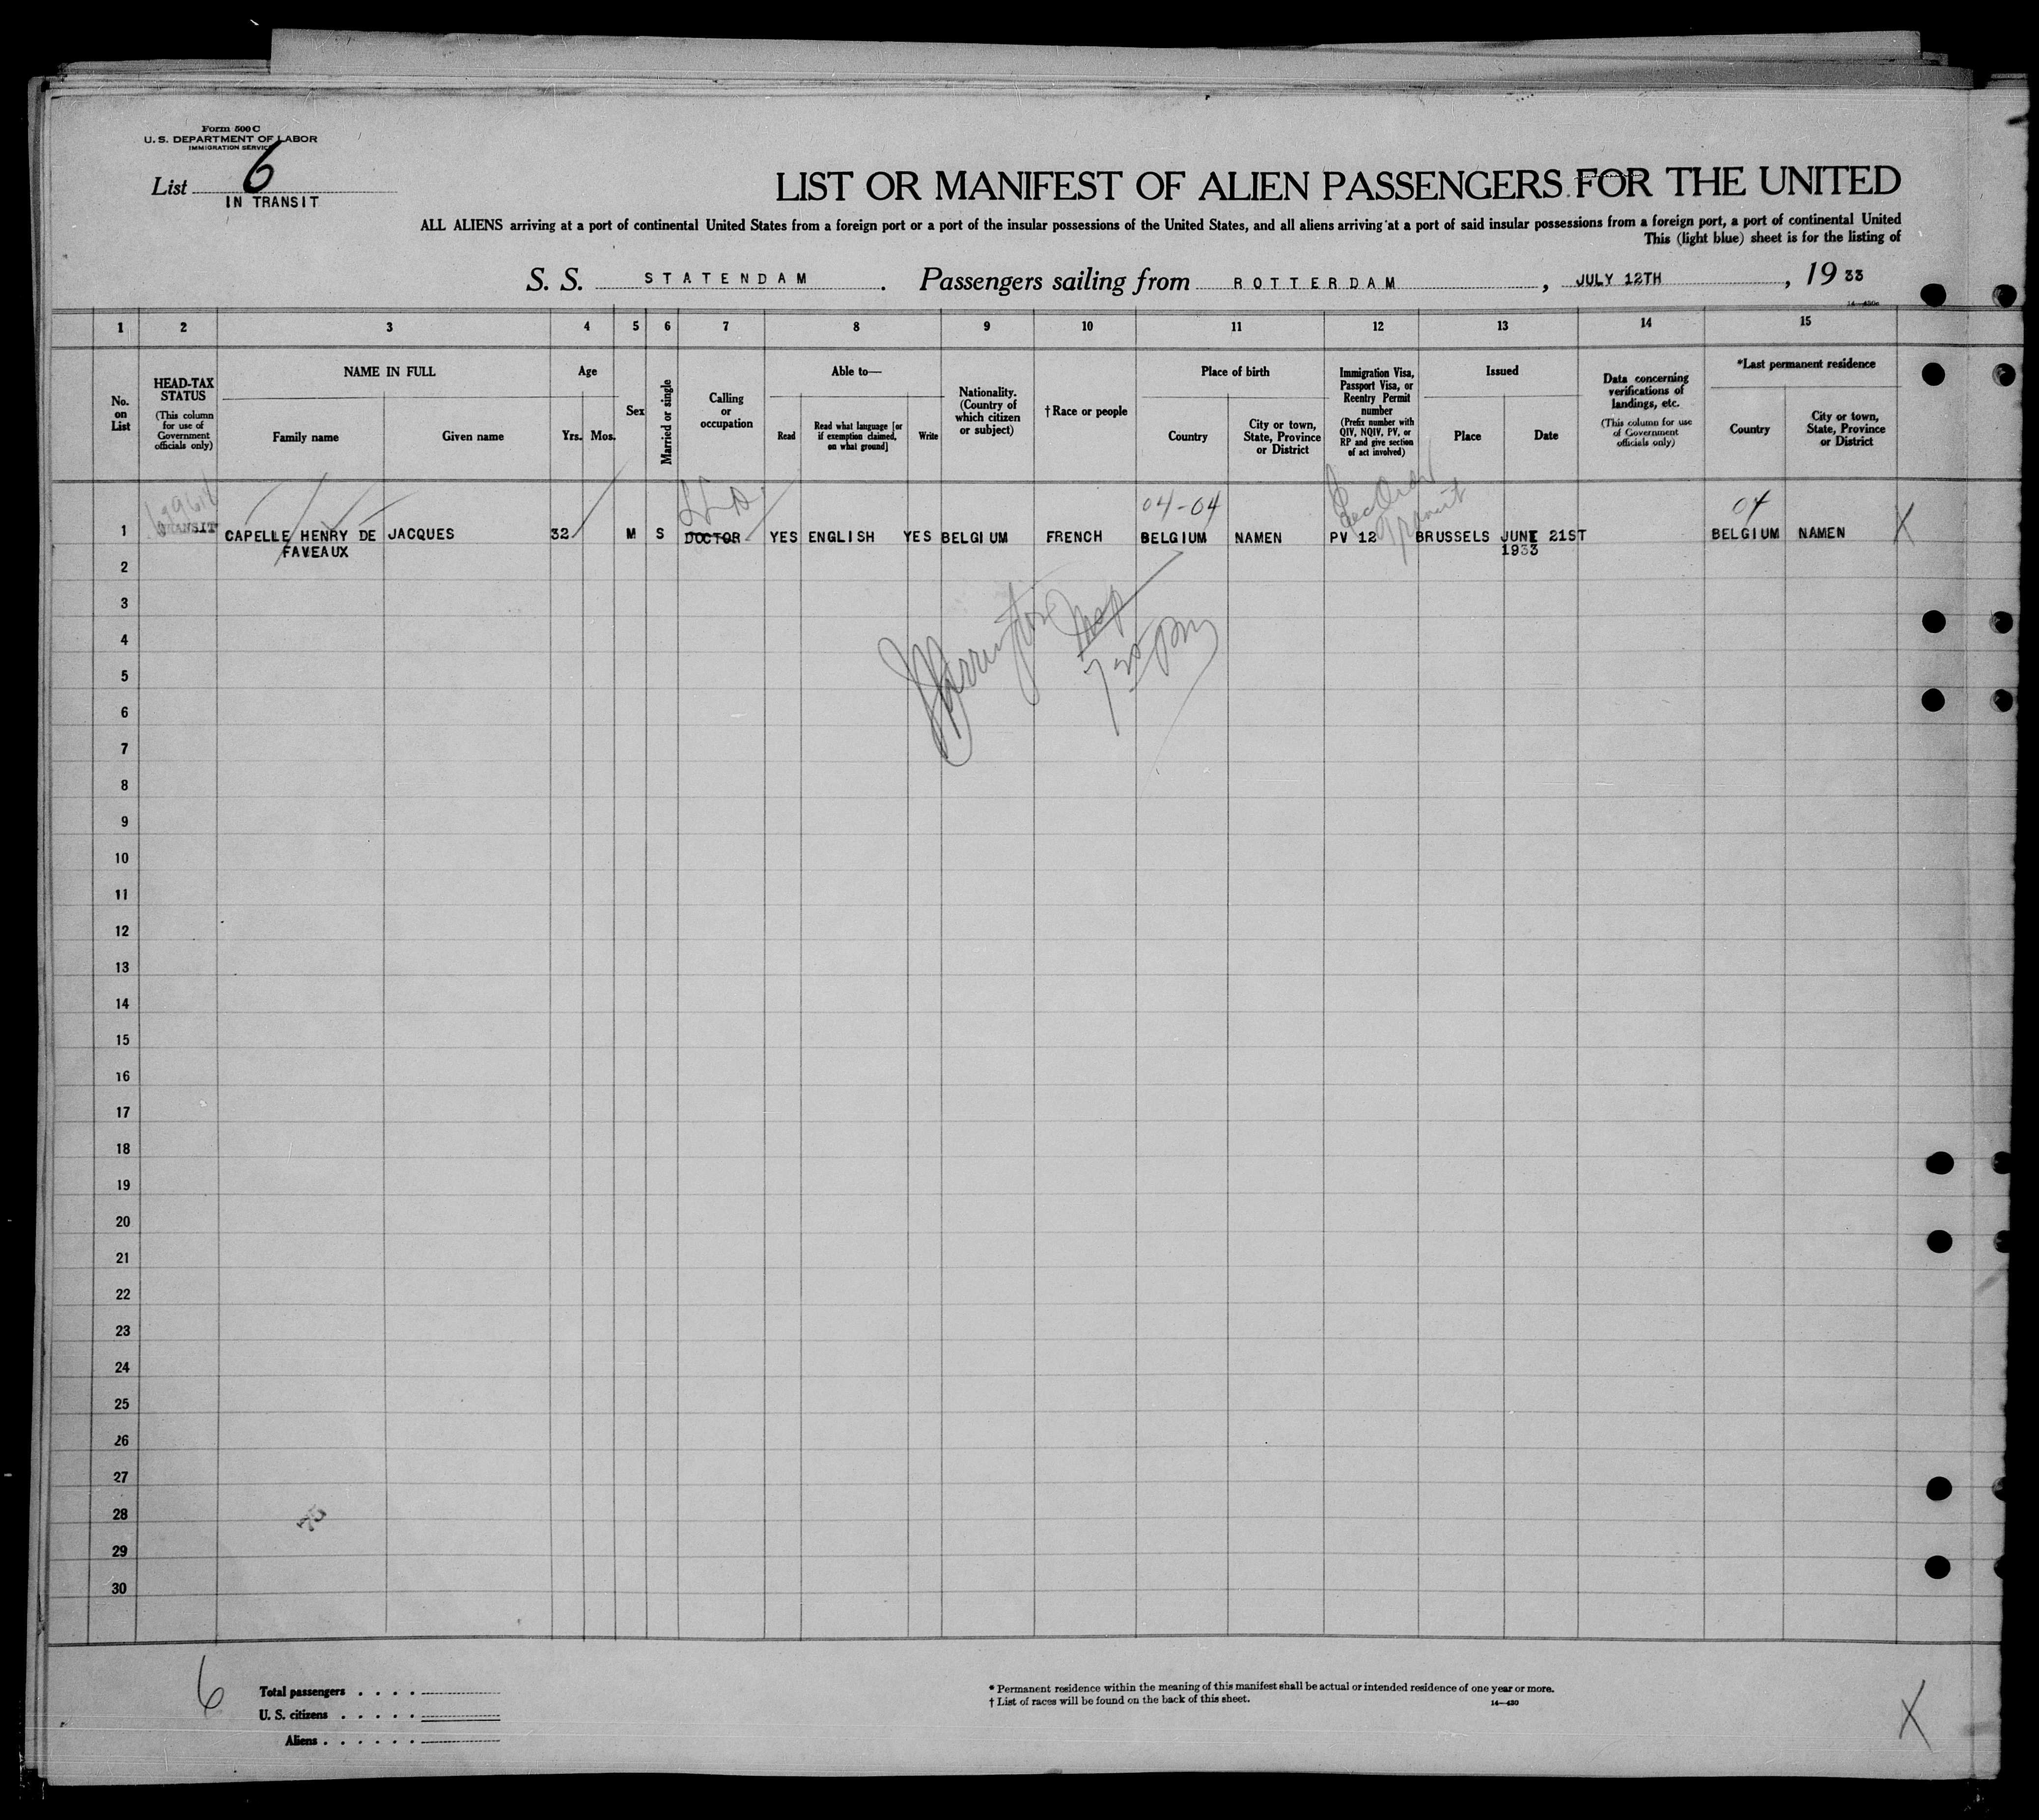 Form 500 C
U. S. DEPARTMENT OF LABOR
IMMIGRATION SERVICE
List 6
IN TRANSIT
LIST OR MANIFEST OF ALIEN PASSENGERS FOR THE UNITED
ALL ALIENS arriving at a port of continental United States from a foreign port or a port of the insular possessions of the United States, and all aliens arriving at a port of said insular possessions from a foreign port, a port of continental United
This (light blue) sheet is for the listing of
S. S. STATENDAM. Passengers sailing from ROTTERDAM, JULY 12TH, 19 33
1 2 3 4 5 6 7 8 9 10 11 12 13 14 15
No. on List
HEAD-TAX STATUS
(This column for use of Government officials only)
NAME IN FULL
Family name
Given name
Age
Yrs. Mos.
Sex
Married or single
Calling or occupation
Able to—
Read
Read what language [or if exemption claimed, on what ground]
Write
Nationality. (Country of which citizen or subject)
† Race or people
Place of birth
Country
City or town, State, Province or District
Immigration Visa, Passport Visa, or Reentry Permit number
(Prefix number with QIV, NQIV, PV, or RP and give section of act involved)
Issued
Place
Date
Data concerning verifications of landings, etc.
(This column for use of Government officials only)
*Last permanent residence
Country
City or town, State, Province or District
04-04
04
1 TRANSIT CAPELLE HENRY DE JACQUES 32 M S DOCTOR YES ENGLISH YES BELGIUM FRENCH BELGIUM NAMEN PV 12 BRUSSELS JUNE 21ST BELGIUM NAMEN X
FAVEAUX 1933
Transit
2
3
4
5
6
7
8
9
10
11
12
13
14
15
16
17
18
19
20
21
22
23
24
25
26
27
28
29
30
6
Total passengers
U. S. citizens
Aliens
* Permanent residence within the meaning of this manifest shall be actual or intended residence of one year or more.
† List of races will be found on the back of this sheet.
14—430
X